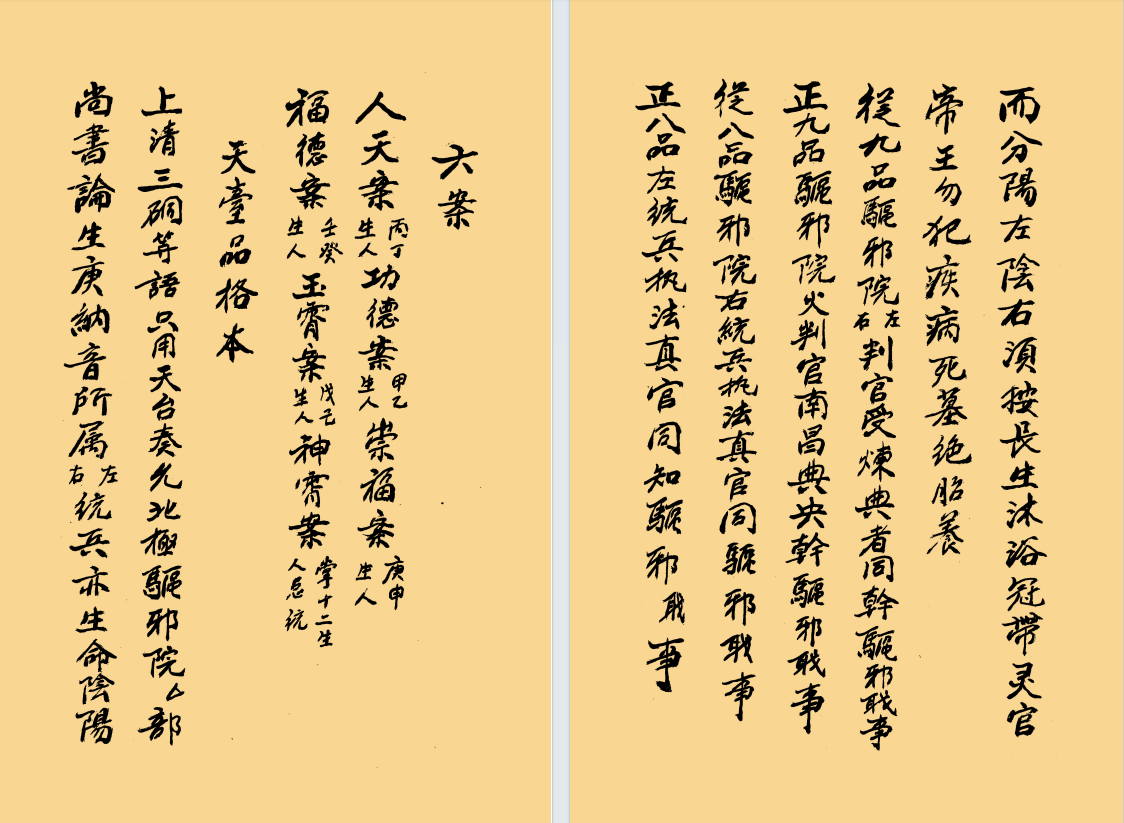 六案
人天案丙丁生人功德案甲乙生人崇福案庚申生人
福德案壬癸生人玉霄案戊己生人神霄案掌十二生人总统
天臺品格本
上清三硐等語只用天台奏允北極驅邪院厶部
尚書論生庚納音所属左右统兵亦生命陰陽
而分陽左陰右須按長生沐浴冠帶灵官
帝王勿犯疾病死墓绝胎養
從九品驅邪院左右判官受煉典者同幹驅邪職事
正九品驅邪院火判官南昌典央幹驅邪職事
從八品驅邪院右統兵执法真官同驅邪職事
正八品左统兵执法真官同知驅邪職事